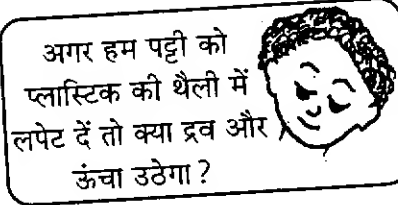 अगर हम पट्टी को
प्लास्टिक की थैली में
लपेट दें तो क्या द्रव और
ऊंचा उठेगा?